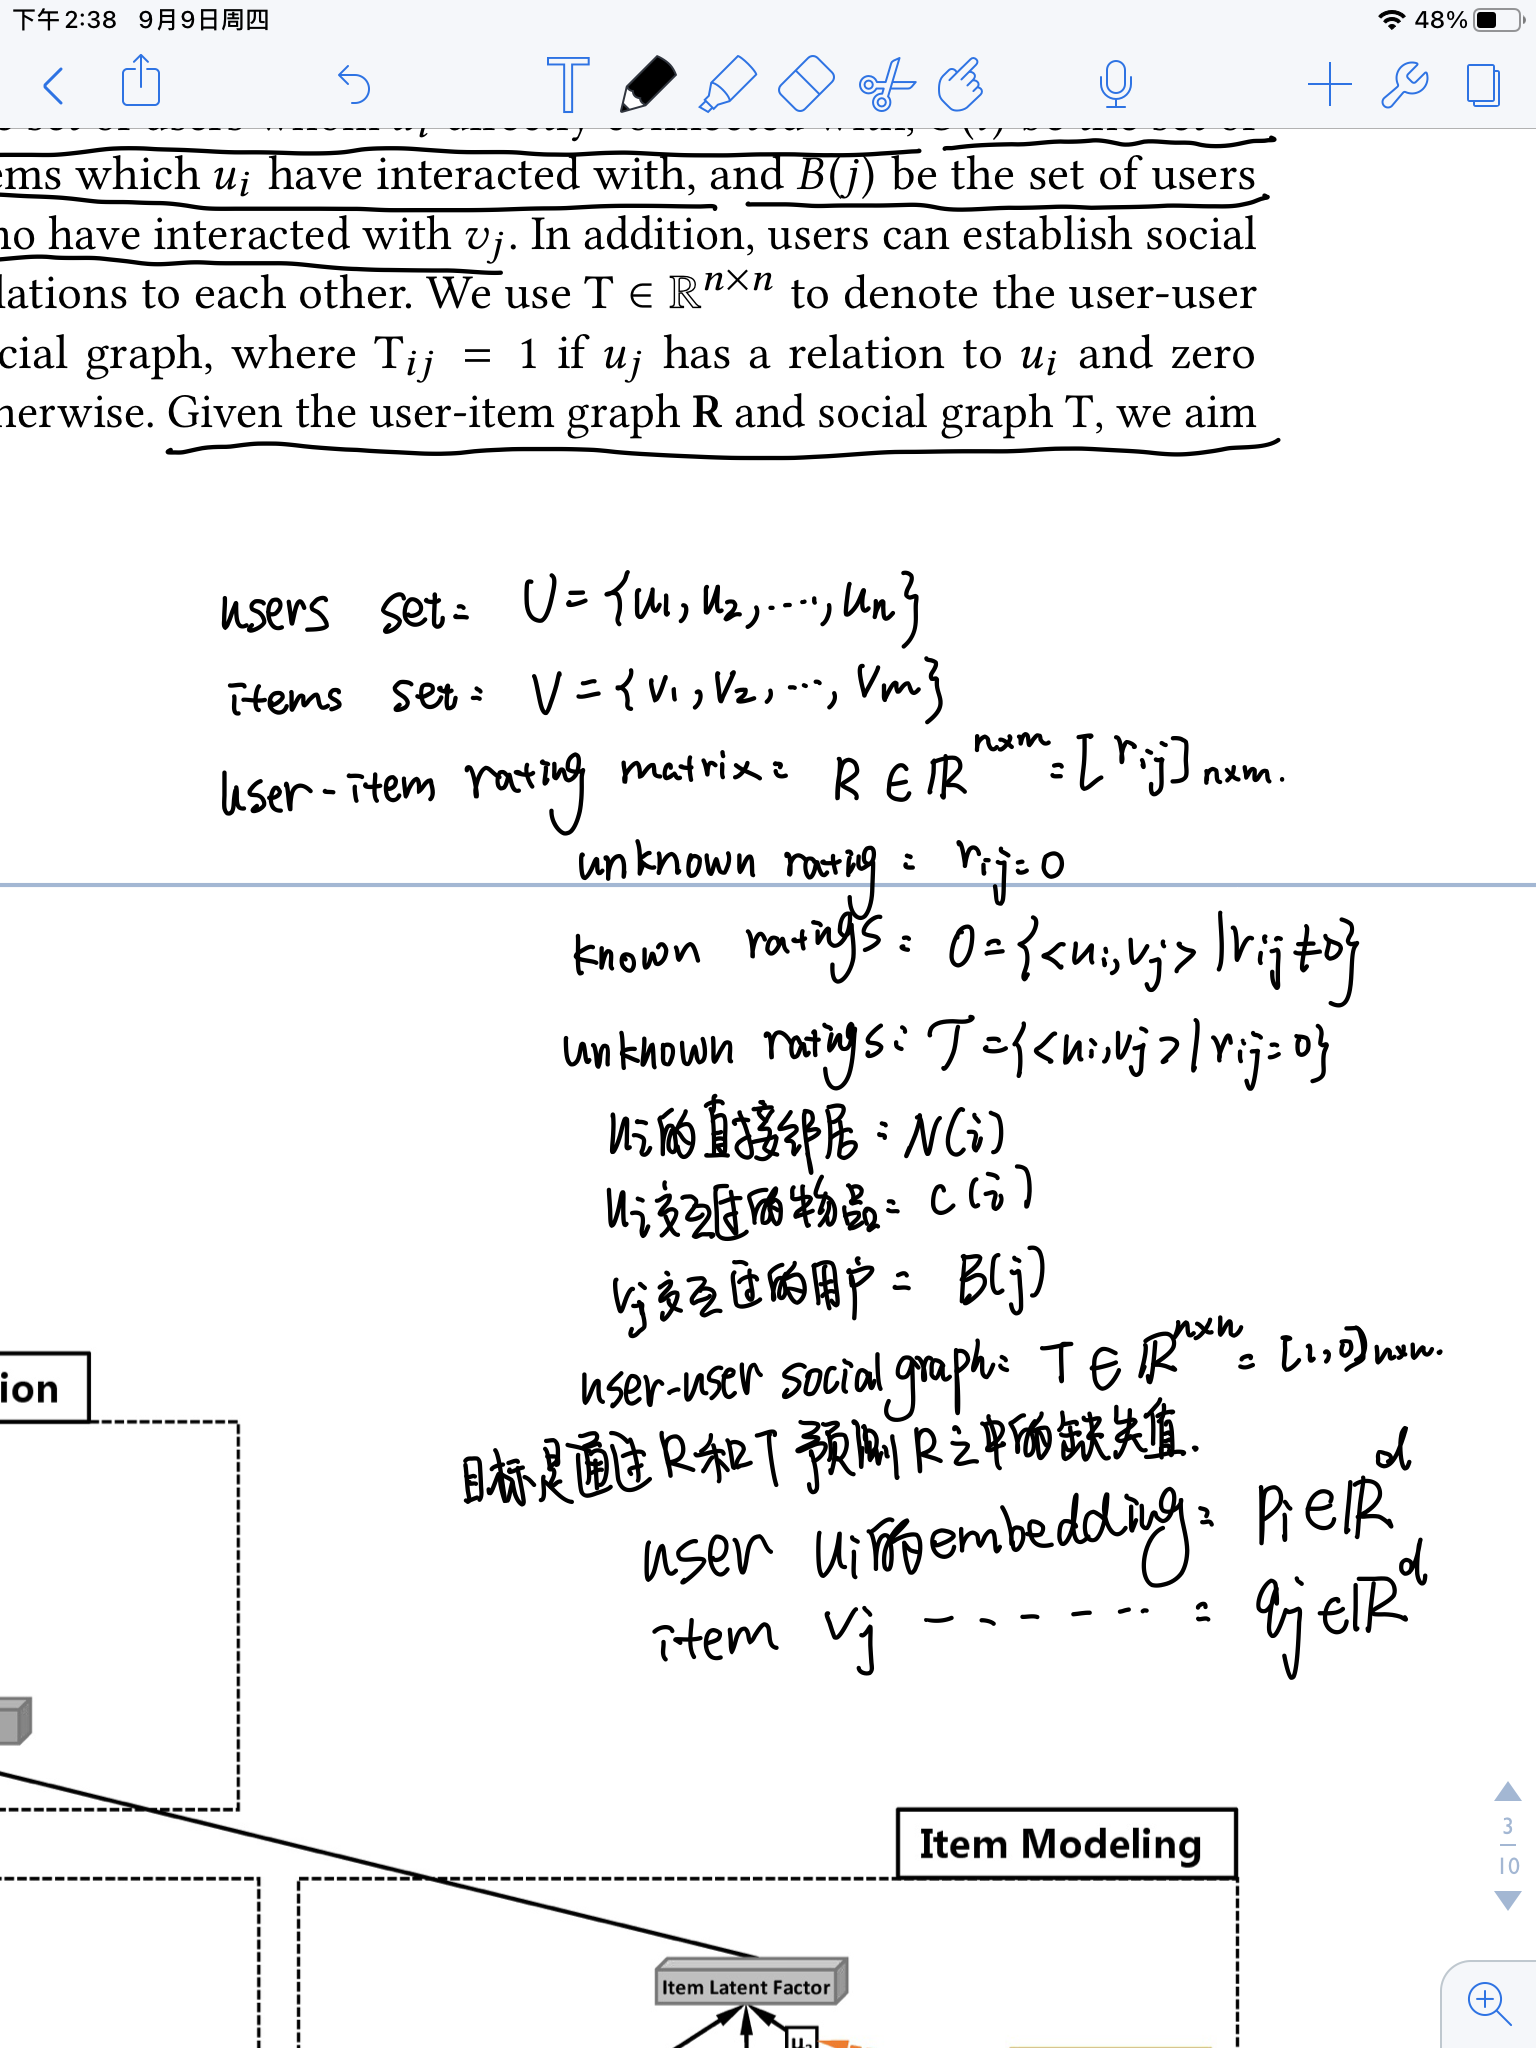 下午2:38 9月9日周四
48%
ems which ui have interacted with, and B(j) be the set of users
no have interacted with vj. In addition, users can establish social
lations to each other. We use T ∈ ℝⁿˣⁿ to denote the user-user
cial graph, where Tij = 1 if uj has a relation to ui and zero
herwise. Given the user-item graph R and social graph T, we aim
users set: U={u1,u2,...,un}
items set: V={v1,v2,...,vm}
user-item rating matrix: R∈ℝⁿˣᵐ=[rij]n×m.
unknown ratig: rij=0
known ratings: O={<ui,vj>|rij≠0}
unknown ratings: T={<ui,vj>|rij=0}
ui的直接邻居:N(i)
ui交互过的物品:C(i)
vj交互过的用户: B(j)
user-user social graph: T∈ℝⁿˣⁿ=[1,0]n×n.
目标是通过R和T预测R之中的缺失值.
user ui的embedding: pi∈ℝᵈ
item vj ------: qj∈ℝᵈ
ion
3
10
Item Modeling
Item Latent Factor